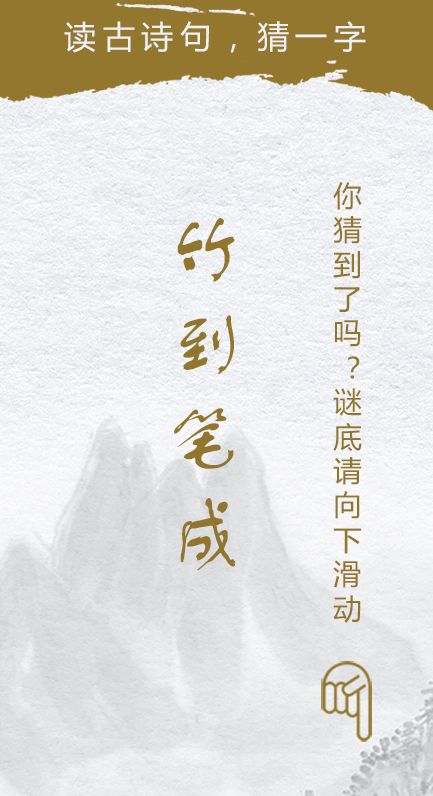 读古诗句，猜一字
你猜到了吗？谜底请向下滑动
竹到笔成